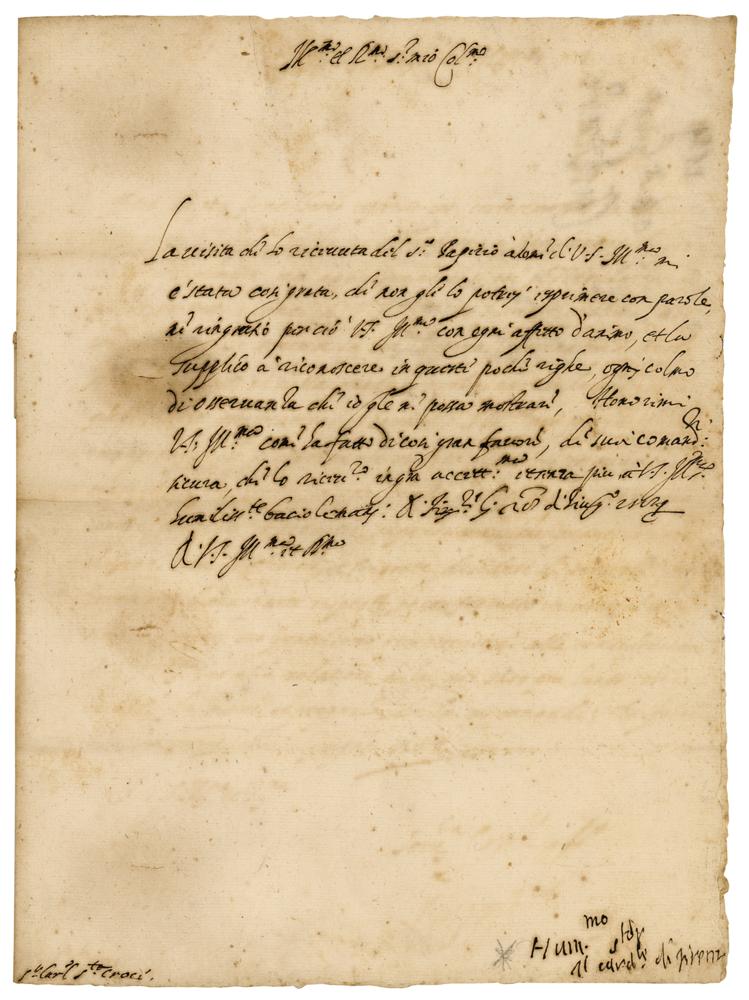 Ill.mo et R.mo s.r mio Col.mo
La visita che ho ricevuta del s.r à nome di V.S. Ill.ma mi
è stata così grata, che non gli lo potrei esprimere con parole,
ne ringratio perciò V.S. Ill.ma con ogni affetto d'animo, et la
supplico à riconoscere in questi pochi righe, ogni colmo
di osservanza che io gle ne possa mostrare, Honorimi
V.S. Ill.ma come ha fatto di così gran favore, di suoi comandi
sicura, che lo in accett.mo senza più à V.S. Ill.ma
humiliss.te bacio le mani: Di
D. V.S. Ill.ma et R.ma
s.r Car.l s.ta Croce.
Hum.mo
il card.le di firenze